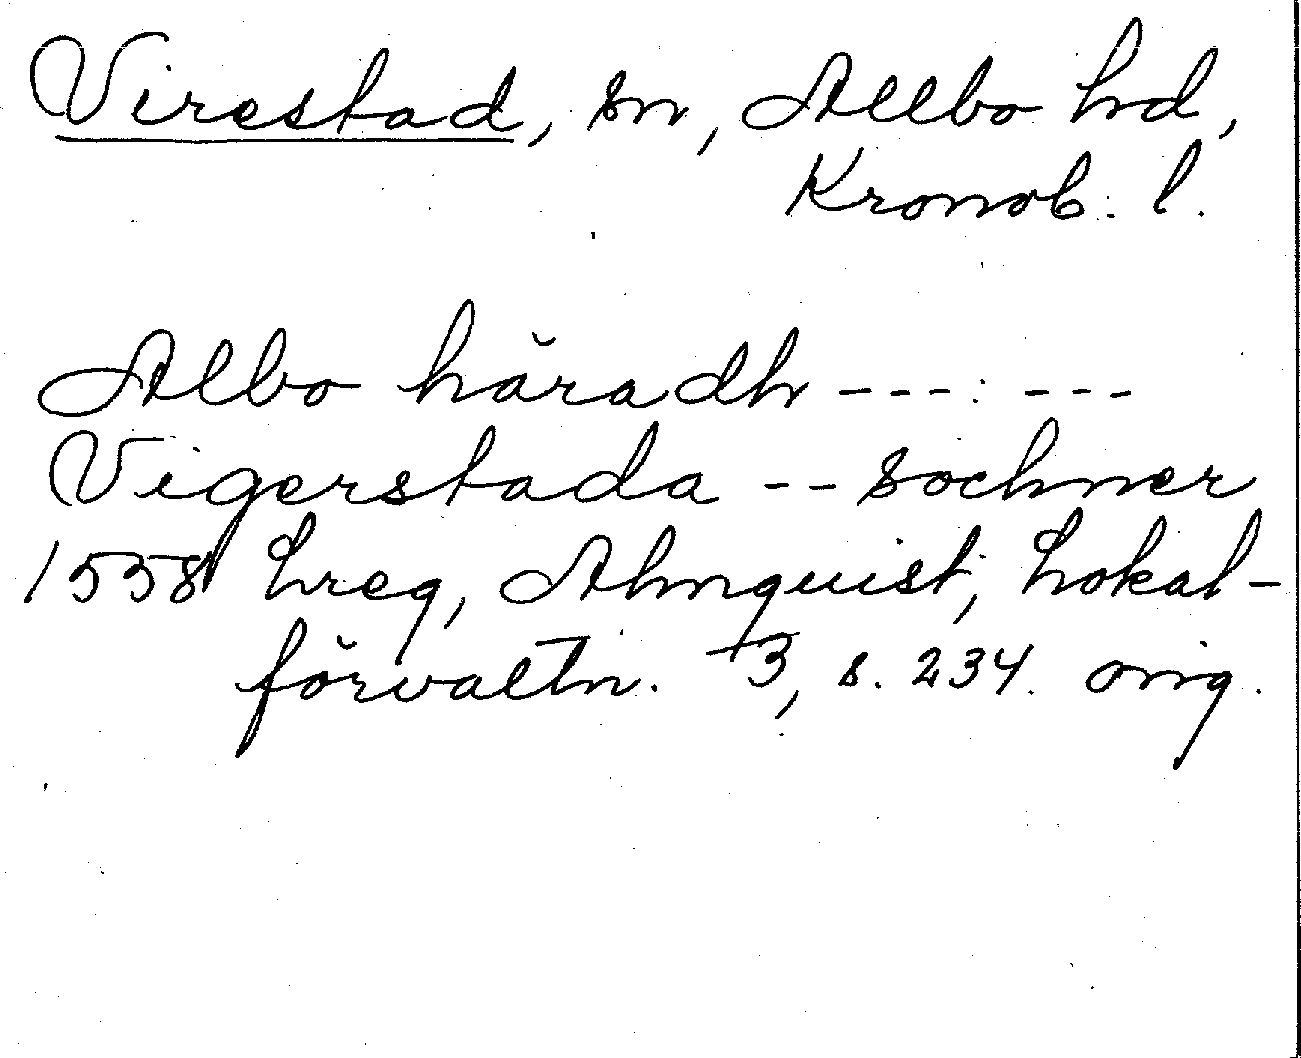 Virestad, sn, Allbo hd,
Kronob. l.
Albo häradh --- : ---
Vigerstada -- sochner
1558 hreg, Almquist, Lokal-
förvaltn. 3, s. 234. orig.